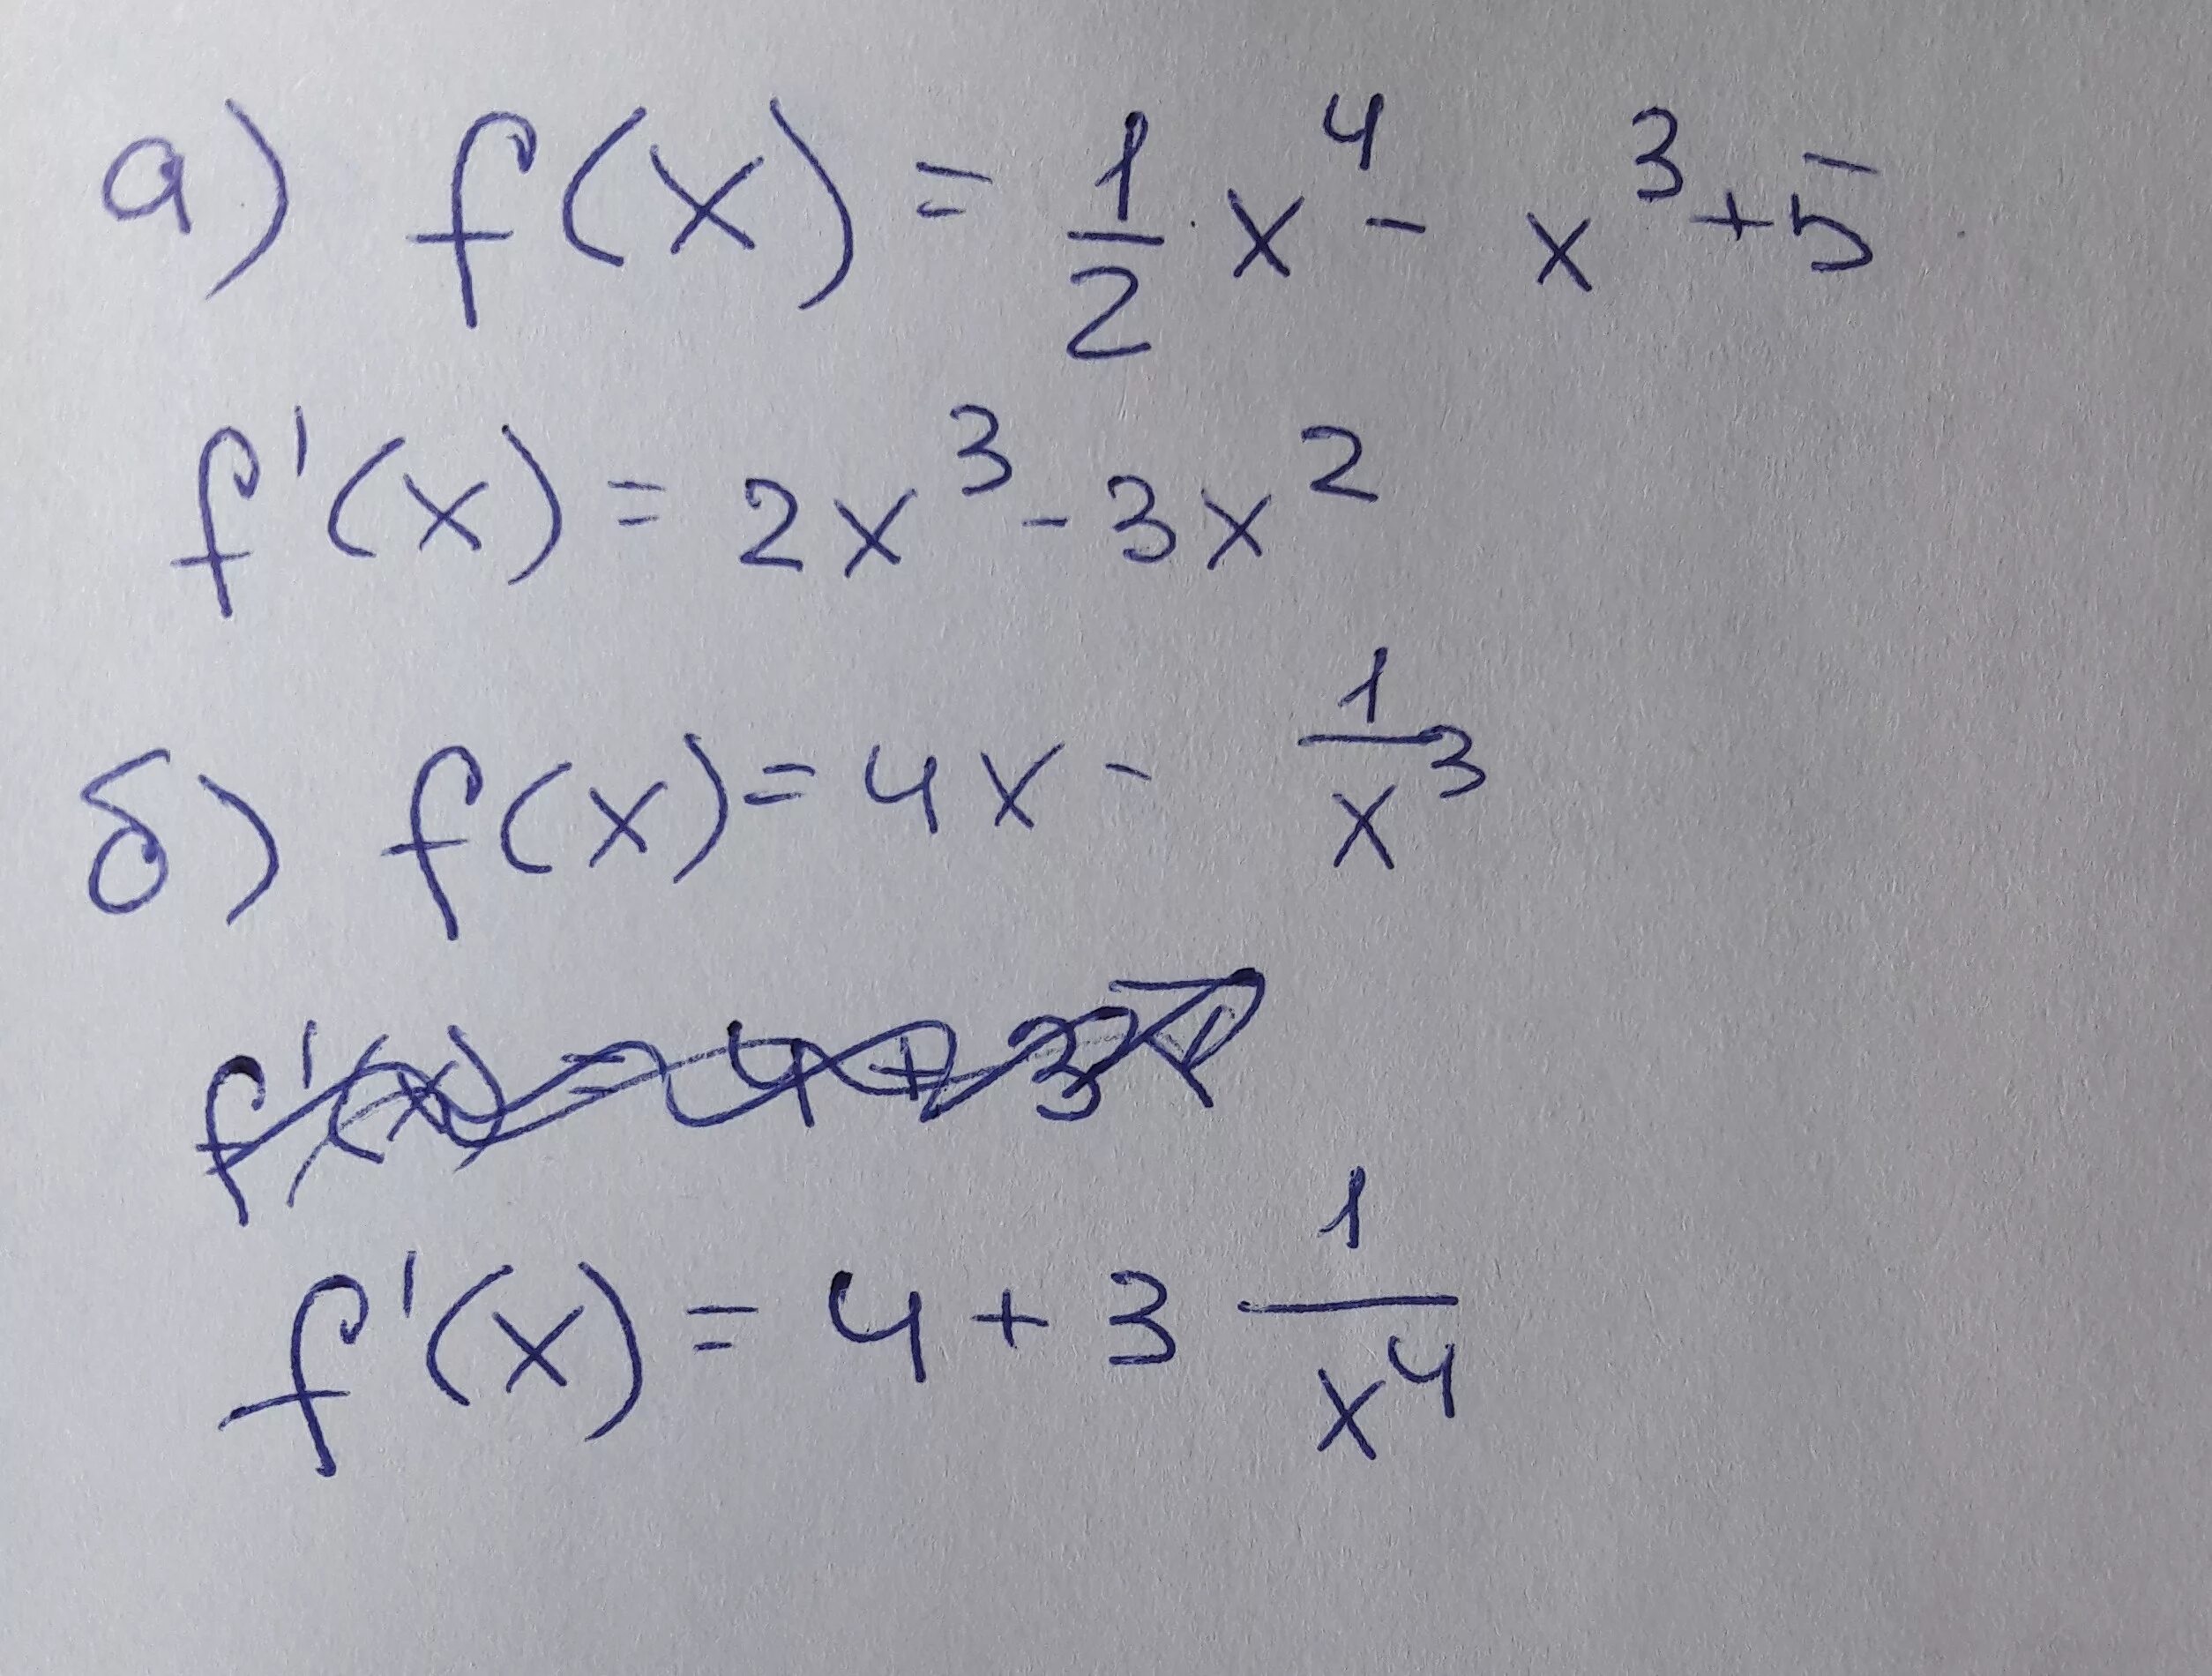 а) f(x) = 1/2 x⁴ - x³ + 5
f'(x) = 2x³ - 3x²
б) f(x) = 4x - 1/x³
f'(x) = 4 + 3
f'(x) = 4 + 3 1/x⁴